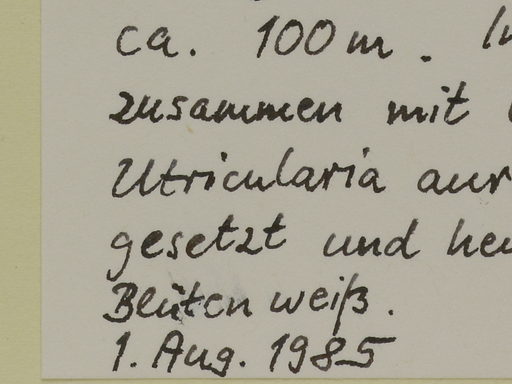 ca. 100 m.
zusammen mit
Utricularia
gesetzt und
Blüten weiß.
1. Aug. 1985